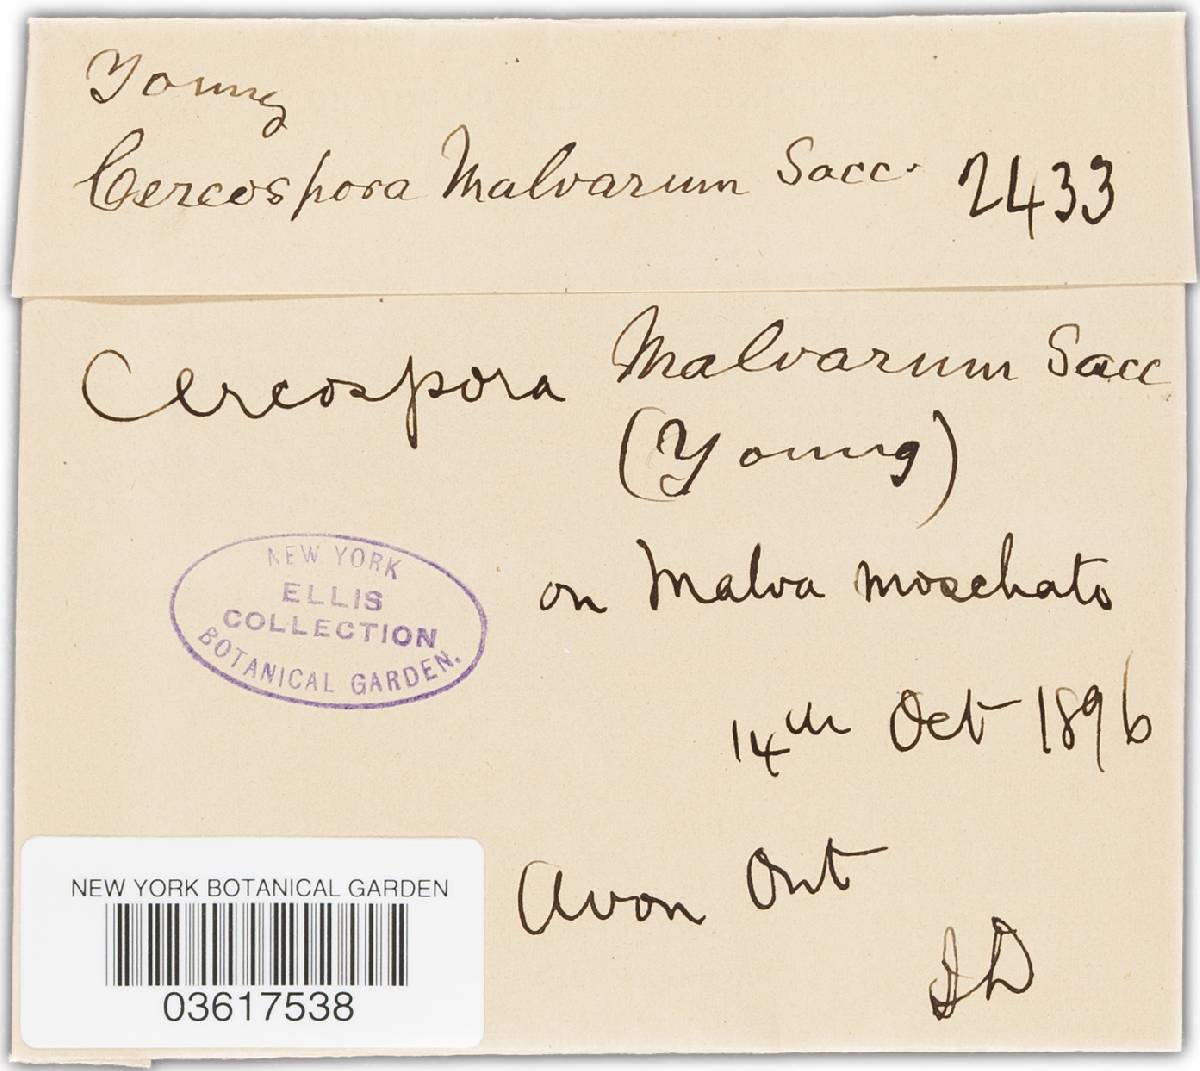 Young
Cercospora Malvarum Sacc. 2433
Cercospora Malvarum Sacc
(Young)
on Malva moschata
14th Oct 1896
Avon Ont
JD
NEW YORK
ELLIS
COLLECTION
BOTANICAL GARDEN.
NEW YORK BOTANICAL GARDEN
03617538